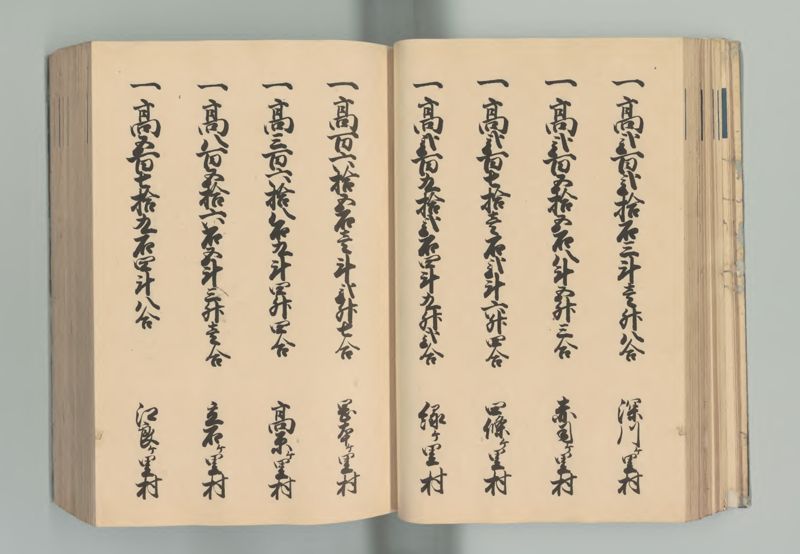 一高弐百弐拾石三斗壱升八合 深川ヶ里村
一高弐百五拾五石八斗五升三合 赤司ヶ里村
一高弐百七拾壱石弐斗六升四合 四條ヶ里村
一高弐百九拾弐石四斗九升弐合 ヶ里村
一高百六拾五石壱斗弐升七合 ヶ里村
一高三百六拾八石九斗四升四合 高木ヶ里村
一高八百五拾六石五斗三升壱合 立石ヶ里村
一高五百七拾九石四斗八合 江良ヶ里村